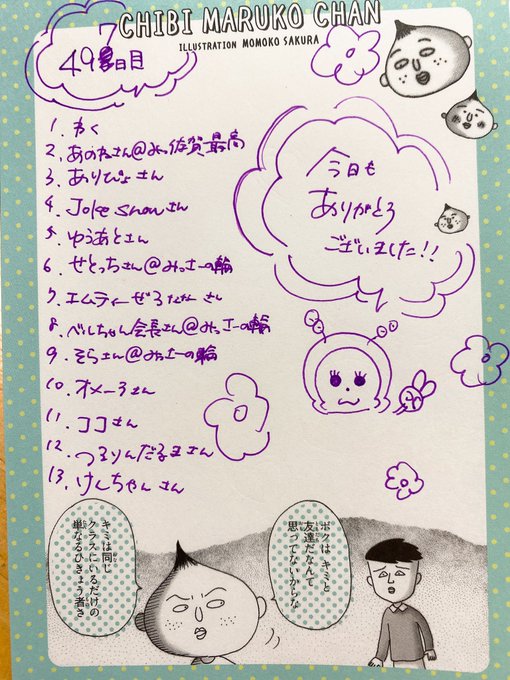 CHIBI MARUKO CHAN
ILLUSTRATION MOMOKO SAKURA
497日目
1. わく
2. あのねさん@みっ佐賀最高
3. ありぴょさん
4. Joke snowさん
5. ゆうあとさん
6. せとっちさん@みっさーの輪
7. エムティーぜろななさん
8. べルちゃん会長さん@みっさーの輪
9. そらさん@みっさーの輪
10. オメーろさん
11. ココさん
12. つるりんだるまさん
13. けんちゃんさん
今日も
ありがとう
ございました!!
ボクはキミと
友達だなんて
思ってないからな
キミは同じ
クラスにいるだけの
単なるひきょう者さ